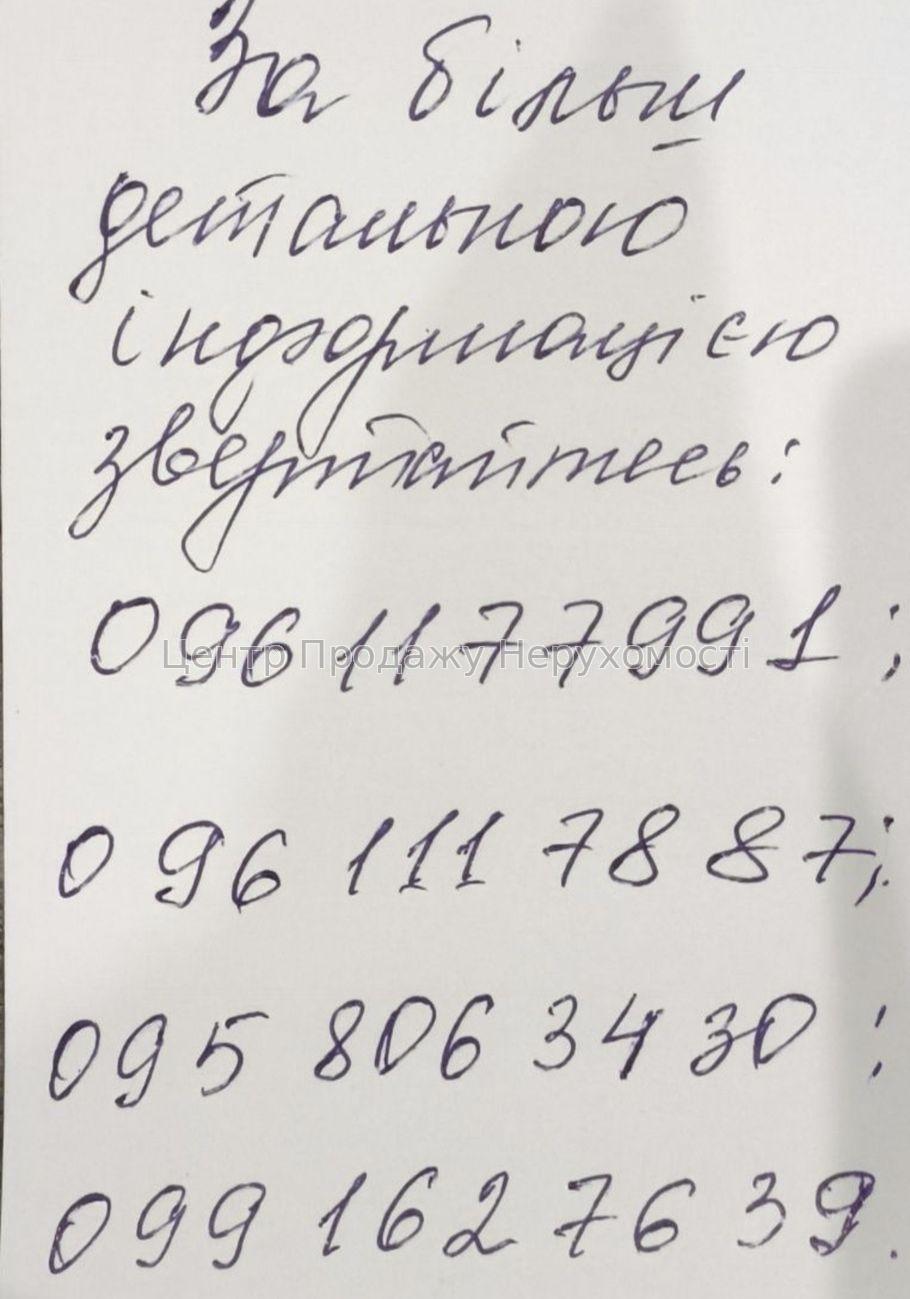 За більш
детальною
інформацією
звертайтесь:
096 11 77 991 ;
Центр Продажу Нерухомості
096 111 78 87;
095 806 34 30 ;
099 162 76 39.